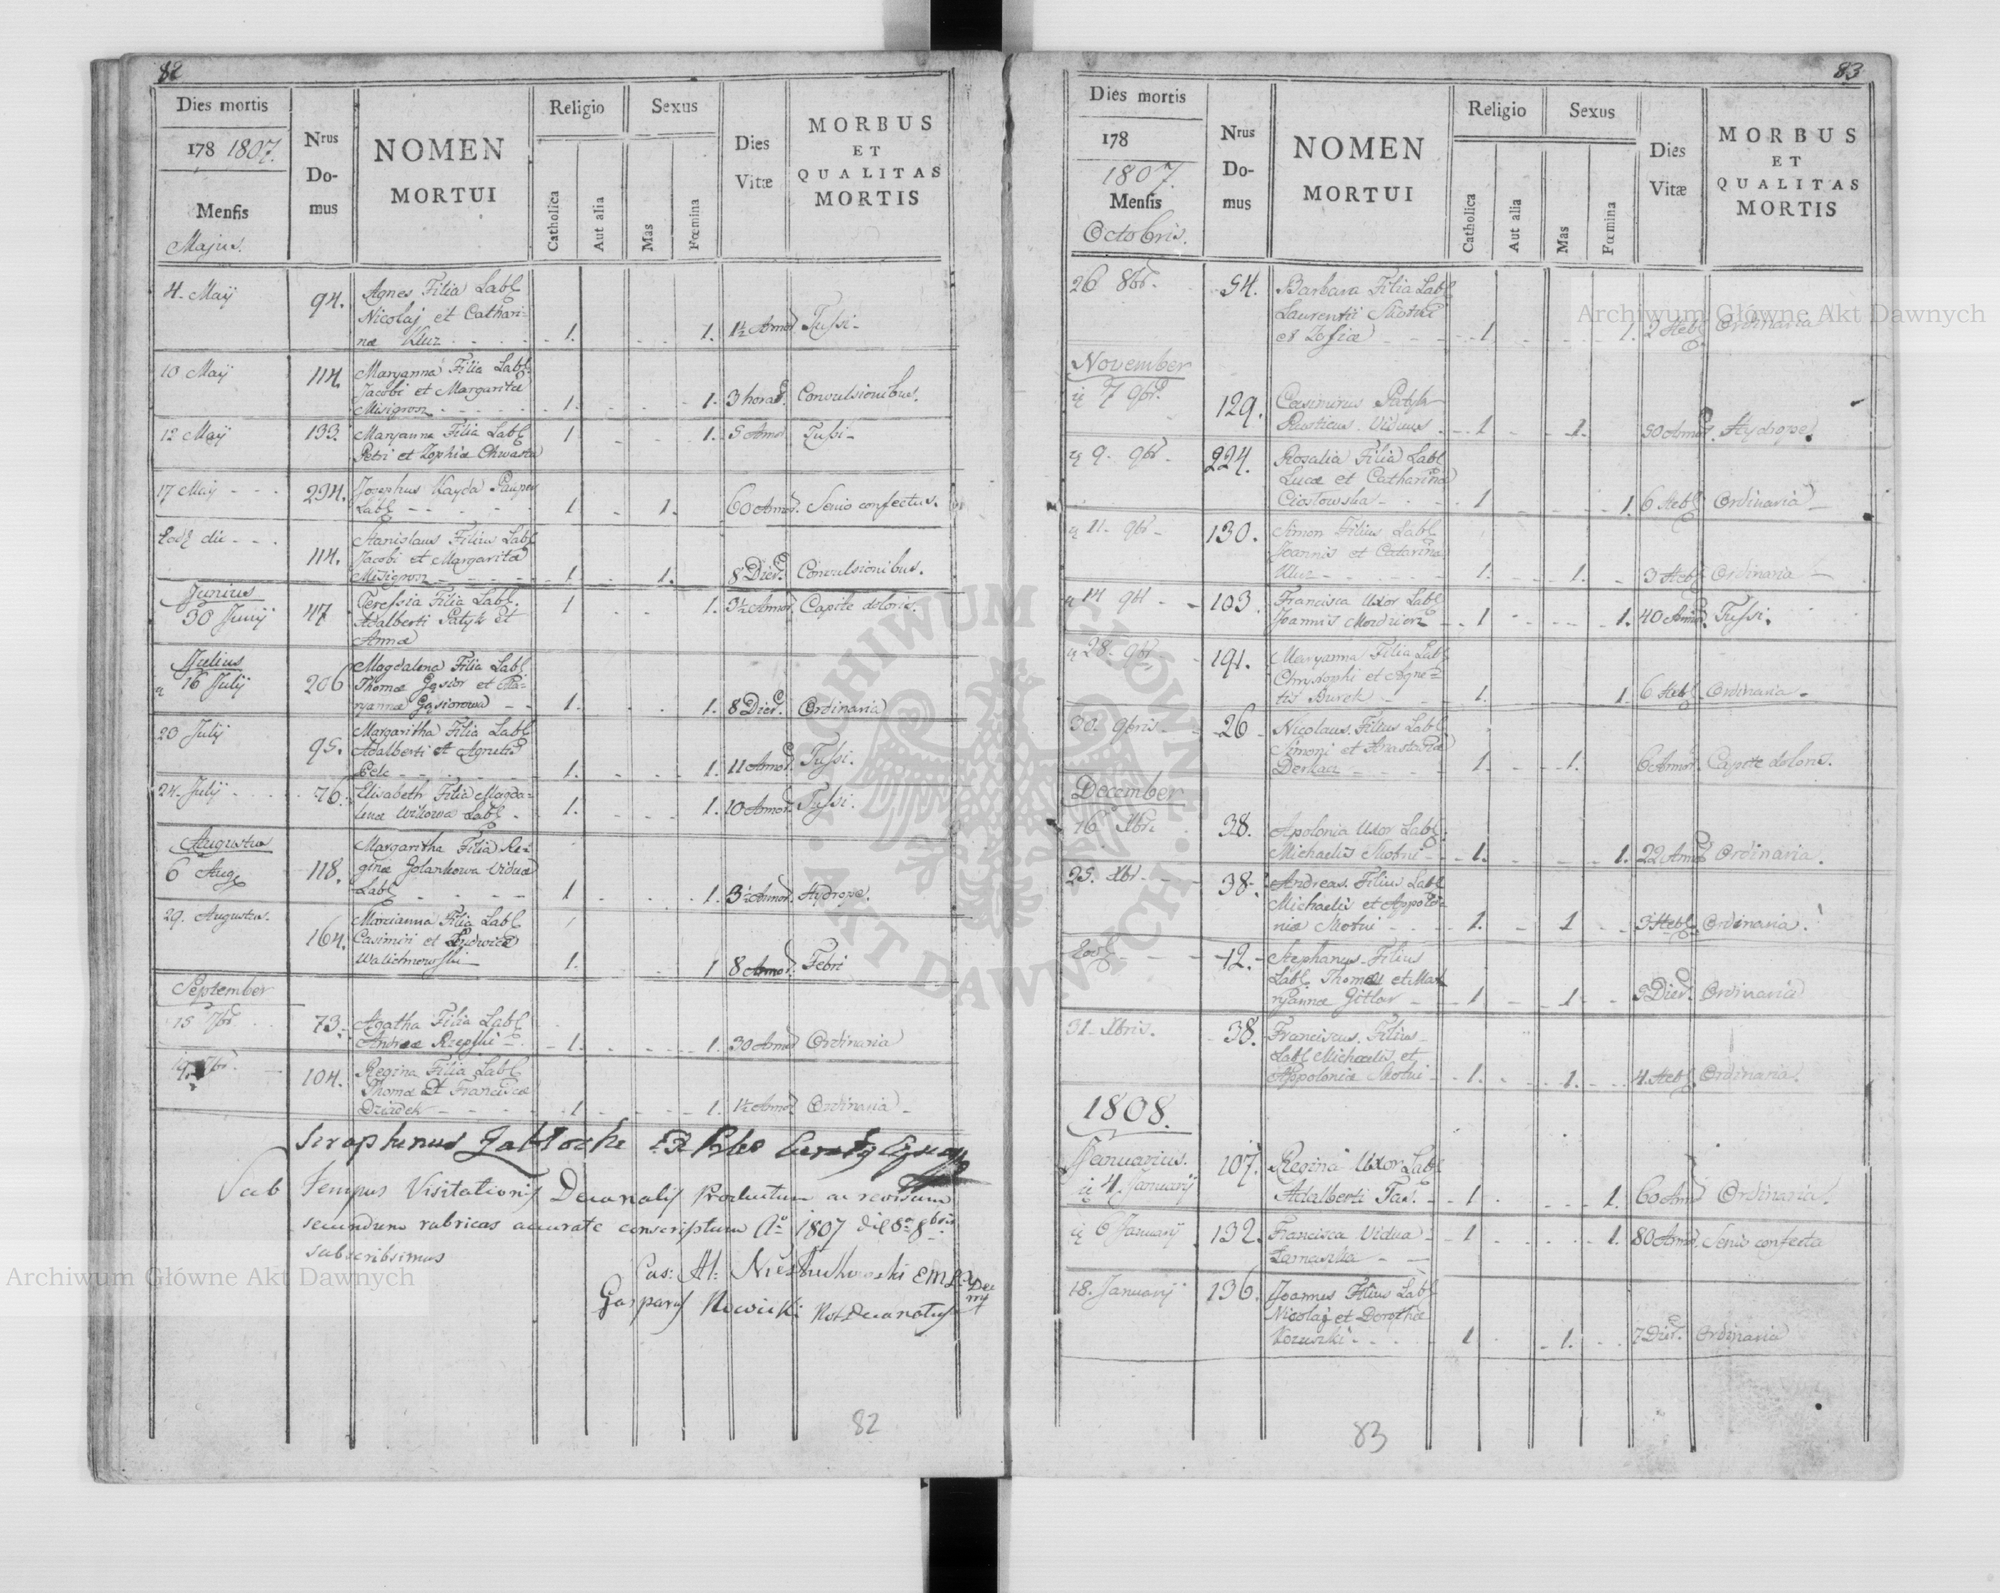 82
Dies mortis
178 1807.
Mensis
Majus.
Nrus
Do-
mus
NOMEN
MORTUI
Religio
Catholica
Aut alia
Sexus
Mas
Fœmina
Dies
Vitæ
MORBUS
ET
QUALITAS
MORTIS
4. Maÿ 94. Agnes Filia Lab
Nicolaj et Cathari-
næ Kluz 1. 1. 1½ Annor Tussi
10 Maÿ 114. Maryanna Filia Lab
Jacobi et Margaritæ
1. 1. 3 horar. Convulsionibus.
12 May 133. Maryanna Filia Lab 1 1. 5 Annor Tussi
Petri et Zophiæ Chwasta
17 May 294. Josephus Kayda Pauper
Lab 1 1. 60 Annor. Senio confectus.
Eod die 114. Stanislaus Filius Lab
Jacobi et Margaritæ
1. 1. 8 Dier. Convulsionibus.
Junius
30 Junÿ 47 Teressia Filia Lab 1 1. 3½ Annor Capite doloris.
Adalberti Patyk et
Annæ
Julius
16 Julÿ 206 Magdalena Filia Lab
Thomæ Gąsior et Ma-
ryannæ Gąsiorowa 1. 1. 8 Dier. Ordinaria
20 July 95. Margaritha Filia Lab
Adalberti et
1. 1. 11 Annor. Tussi.
24. July 76. Elisabeth Filia Magda-
lenæ Wilkowa Lab 1. 1. 10 Annor. Tussi.
Augustus
6 Aug 118. Margaritha Filia Re-
ginæ Golankowa Vidua
Lab 1 1. 3½ Annor. Hidrope.
29. Augustus. 164. Marcianna Filia Lab
Casimiri et Ludwicæ
1. 1 8 Annor. Febri
September
15 7br 73. Agatha Filia Lab
Andreæ Rzepski 1. 1. 30 Annor Ordinaria
7br. 104. Regina Filia Lab
Thomæ et Franciscæ
Dziadek 1 1. 1½ Annor Ordinaria
Sub Tempus Visitationis Decanalis Productum ac revisum
secundum rubricas accurate conscriptum Ao 1807 die 8bris
subscribsimus
Cas: Al:
Gasparus Nowicki Not Decanatus
82
83
Dies mortis
178
1807.
Mensis
Octobris.
Nrus
Do-
mus
NOMEN
MORTUI
Religio
Catholica
Aut alia
Sexus
Mas
Fœmina
Dies
Vitæ
MORBUS
ET
QUALITAS
MORTIS
26 8br. 54. Barbara Filia Lab
Laurentii Skotni
et Zofiæ 1 1. 2 Heb Ordinaria
November
7 9br. 129. Casimirus Patyk
Rusticus Viduus 1 1. 50 Annor. Hydrope
9. 9br. 224. Rosalia Filia Lab
Lucæ et Catharinæ
Ciostowska 1 1. 6 Heb Ordinaria
11. 9br 130. Simon Filius Lab
Joannis et Catarina
Kluz 1. 1. 3 Heb Ordinaria
14 9br 103. Francisca Uxor Lab
Joannis 1 1. 40 Annor. Tussi.
28. 9br 191. Maryanna Filia Lab
Chrystophi et Agne-
tis Burek 1. 1. 6 Heb Ordinaria.
30. 9bris. 26 Nicolaus Filius Lab
Simoni et Anastasiæ
1. 1. 6 Annor. Capite doloris.
December
16 Xbr. 38. Apolonia Uxor Lab
Michaelis Skotni 1. 1. 22 Annor Ordinaria.
25. Xbr. 38. Andreas Filius Lab
Michaelis et Appolo-
niæ Skotni 1. 1 3 Heb Ordinaria.
Eod 12. Stephanus Filius
Lab Thomæ et Mar
ryannæ Gitlar 1 1 Dier. Ordinaria
31. Xbris. 38. Franciscus Filius
Lab Michaelis et
Appoloniæ Skotni 1. 1. 4 Heb Ordinaria.
1808.
Januarius.
4. Januarÿ 107. Regina Uxor Lab
Adalberti 1 1. 60 Ann Ordinaria.
6 Januarÿ 132. Francisca Vidua 1 1. 80 Annor. Senio confecta
18. Januarÿ 136. Joannes Filius Lab
Nicolaj et Dorothæ
1 1. 7 Dier. Ordinaria
83
Archiwum Główne Akt Dawnych
Archiwum Główne Akt Dawnych
ARCHIWUM GŁÓWNE AKT DAWNYCH